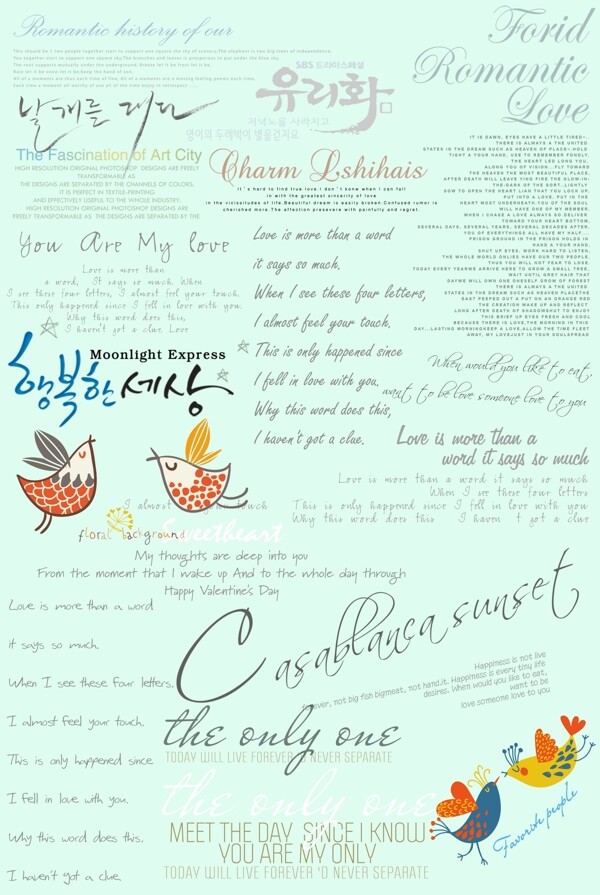 Romantic history of our
This should be 1 two people together start to support one square the sky of scenery.The elephant is two big trees of independence,
You together start to support one square sky.The branches and leaves is prosperous to put under the blue sky
The root supports mutually under the underground. Breeze let it be from let it be,
Rain let it be snow let it be,keep the hand of son,
All of a moments are thus each time of fine, All of a moments are a moving feeling poems each time,
Each time a moment of worthy of our all of the time enjoy in retrospect ......
날개를 대다
SBS 드라마스페셜
유리화
저녁노을 사락지고
영어의 두레박이 별을걷지요
Forid
Romantic
Love
The Fascination of Art City
HIGH RESOLUTION ORIGINAL PHOTOSHOP DESIGNS ARE FREELY
TRANSFORMABLE AS
THE DESIGNS ARE SEPARATED BY THE CHANNELS OF COLORS.
IT IS PERFECT IN TEXTILE-PRINTING
AND EFFECTIVELY USEFUL TO THE WHOLE INDUSTRY.
HIGH RESOLUTION ORIGINAL PHOTOSHOP DESIGNS ARE
FREELY TRANSFORMABLE AS THE DESIGNS ARE SEPARATED BY THE
Charm Lshihais
It's hard to find true love.I don't know when I can fall
in with the greatest sincerity of love.
in the vicissitudes of life.Beautiful dream is easily broken.Confused rumor is
cherished more.The affection presevere with painfully and regret.
IT IS DAWN, EYES HAVE A LITTLE TIRED~.
THERE IS ALWAYS A THE UNITED
STATES IN THE DREAM SUCH AS HEAVEN OF PLACE~.HOLD
TIGHT A YOUR HAND, USE TO REMEMBER FONDLY,
THE HEART LED LONG YOU,
ALONG YOU OF VISION...FLY TOWARD
THE HEAVEN THE MOST BEAUTIFUL PLACE,
AFTER DEATH WILL LEAVE YING FIRE THE GLOW-IN-
THE-DARK OF THE SORT...LIGHTLY
GOW TO OPEN THE HEART LIAN THAT CURLS UP YOU,
PUT INTO A LOVE, PUT IN THE
HEART MOST UNDERNEATH.YOU OF THE SOUL
WILL HAVE ONE OF BY MEMBER,
WHEN I CHASE A LOVE ALWAYS SO DELIVER
TOWARD YOUR HEART BOTTOM,
SEVERAL DAYS, SEVERAL YEARS, SEVERAL DECADES AFTER,
YOU OF EVERYTHINGS ALL HAVE MY HALF...
PRISON GROUND IN THE PRISON HOLDS IN
HAND A YOUR HAND,
SHUT UP EYES, WORK HARD TO LISTEN,
THE WHOLE WORLD ONLIES HAVE OUR TWO PEOPLE,
THUS YOU WILL NOT FEAR TO LONELY,
TODAY EVERY YEARMS ARRIVE HERE TO GROW A SMALL TREE,
WAIT UNTIL GREY HAIR THAT
DAYWE WILL OWN ONE ONESELF GROW OF FOREST
THERE IS ALWAYS A THE UNITED
STATES IN THE DREAM SUCH AS HEAVEN PLACETHE
EAST PEEPED OUT A PUT ON AN ORANGE RED
THE CREATION WAKE UP AND REFLECT
LONG AFTER DEATH OF SHADOWSHUT TO ENJOY
THIS BRIEF UP EYES FRESH AND COOL
BECAUSE THERE IS LOVE,THE MORNING IN THIS
DAY...LASTING MORNINGKEEP A LOVE,ALLOW THE TIME FLEET
AWAY, MY LOVEJUST IN YOUR SOULSPREAD
You Are My love
Love is more than
a word, It says so much. When
I see these four letters, I almost feel your touch.
This only happened since I fell in love with you.
Why this word does this,
I haven't got a clue. Love
Love is more than a word
it says so much.
When I see these four letters,
I almost feel your touch.
This is only happened since
I fell in love with you.
Why this word does this,
I haven't got a clue.
Moonlight Express
행복한 세상
When would you like to eat,
want to be love someone love to you
Love is more than a
word it says so much
Love is more than a word it says so much
When I see these four letters
I almost feel your touch This is only happened since I fell in love with you
Why this word does this I haven t got a clue
floral background
Sweetheart
My thoughts are deep into you
From the moment that I wake up And to the whole day through
Happy Valentine's Day
Love is more than a word
it says so much.
When I see these four letters.
I almost feel your touch.
This is only happened since
I fell in love with you.
Why this word does this.
I haven't got a clue.
Casablanca sunset
Happiness is not live
forever, not big fish bigmeat, not hand.it. Happiness is every tiny life
desires. When would you like to eat,
want to be
love someone love to you
the only one
TODAY WILL LIVE FOREVER 'D NEVER SEPARATE
the only one
MEET THE DAY SINCE I KNOW
YOU ARE MY ONLY
TODAY WILL LIVE FOREVER 'D NEVER SEPARATE
Favorite people